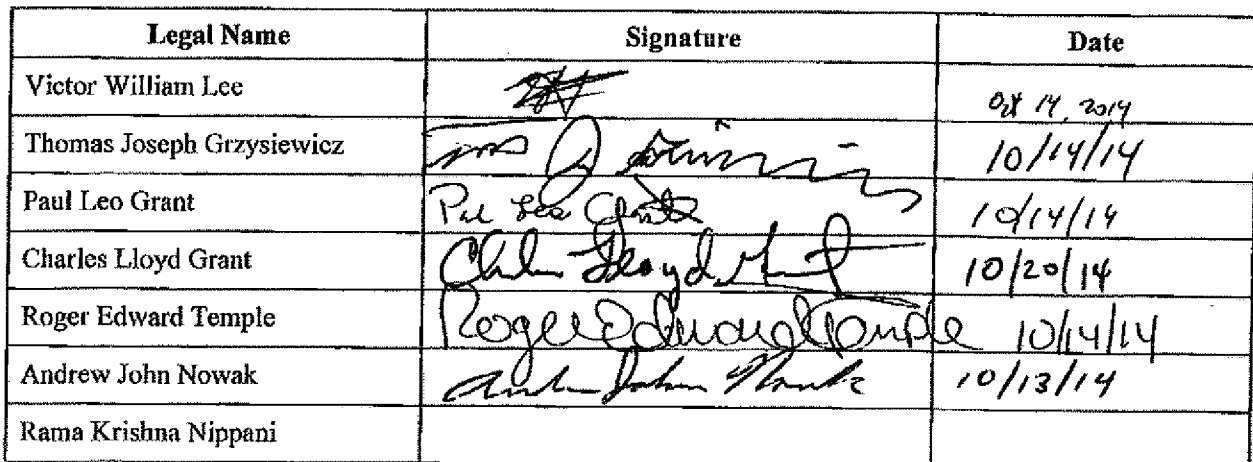 Legal Name Signature Date
Victor William Lee Oct 14, 2014
Thomas Joseph Grzysiewicz 10/14/14
Paul Leo Grant Paul Leo Grant 10/14/14
Charles Lloyd Grant Charles Lloyd Grant 10/20/14
Roger Edward Temple Roger Edward Temple 10/14/14
Andrew John Nowak Andrew John Nowak 10/13/14
Rama Krishna Nippani